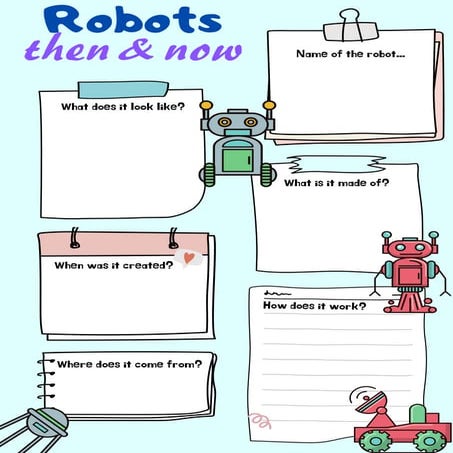 Robots
then & now
Name of the robot...
What does it look like?
What is it made of?
When was it created?
How does it work?
Where does it come from?